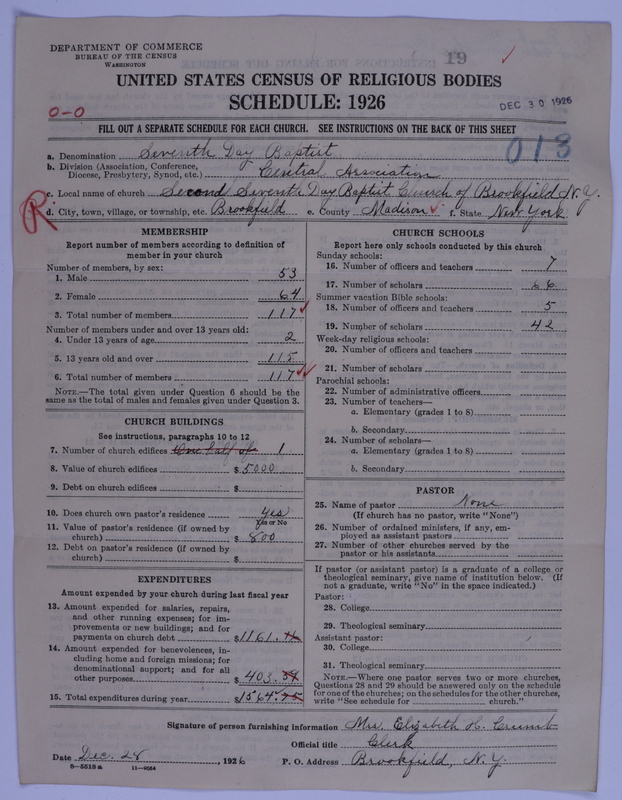 DEPARTMENT OF COMMERCE
BUREAU OF THE CENSUS
WASHINGTON
19
UNITED STATES CENSUS OF RELIGIOUS BODIES
SCHEDULE: 1926
DEC 30 1926
0-0
FILL OUT A SEPARATE SCHEDULE FOR EACH CHURCH. SEE INSTRUCTIONS ON THE BACK OF THIS SHEET
013
a. Denomination Seventh Day Baptist
b. Division (Association, Conference, Diocese, Presbytery, Synod, etc.) Central Association
c. Local name of church Second Seventh Day Baptist Church of Brookfield N.Y.
R
d. City, town, village, or township, etc. Brookfield e. County Madison f. State New York
MEMBERSHIP
Report number of members according to definition of
member in your church
Number of members, by sex:
1. Male 53
2. Female 64
3. Total number of members 117
Number of members under and over 13 years old:
4. Under 13 years of age 2
5. 13 years old and over 115
6. Total number of members 117
NOTE.—The total given under Question 6 should be
same as the total of males and females given under Question 3.
CHURCH BUILDINGS
See instructions, paragraphs 10 to 12
7. Number of church edifices One half of 1
8. Value of church edifices $5000
9. Debt on church edifices $
10. Does church own pastor's residence yes
Yes or No
11. Value of pastor's residence (if owned by
church) $800
12. Debt on pastor's residence (if owned by
church) $
EXPENDITURES
Amount expended by your church during last fiscal year
13. Amount expended for salaries, repairs,
and other running expenses; for im-
provements or new buildings; and for
payments on church debt $1161.
14. Amount expended for benevolences, in-
cluding home and foreign missions; for
denominational support; and for all
other purposes $403.
15. Total expenditures during year $1564.
CHURCH SCHOOLS
Report here only schools conducted by this church
Sunday schools:
16. Number of officers and teachers 7
17. Number of scholars 66
Summer vacation Bible schools:
18. Number of officers and teachers 5
19. Number of scholars 42
Week-day religious schools:
20. Number of officers and teachers
21. Number of scholars
Parochial schools:
22. Number of administrative officers
23. Number of teachers—
a. Elementary (grades 1 to 8)
b. Secondary
24. Number of scholars—
a. Elementary (grades 1 to 8)
b. Secondary
PASTOR
25. Name of pastor None
(If church has no pastor, write "None")
26. Number of ordained ministers, if any, em-
ployed as assistant pastors
27. Number of other churches served by the
pastor or his assistants
If pastor (or assistant pastor) is a graduate of a college or
theological seminary, give name of institution below. (If
not a graduate, write "No" in the space indicated.)
Pastor:
28. College
29. Theological seminary
Assistant pastor:
30. College
31. Theological seminary
NOTE.—Where one pastor serves two or more churches,
Questions 28 and 29 should be answered only on the schedule
for one of the churches; on the schedules for the other churches,
write "See schedule for church."
Signature of person furnishing information Mrs. Elizabeth H. Crumb
Official title Clerk
Date Dec. 28, 1926 P. O. Address Brookfield, N.Y.
8-5518a 11-9564